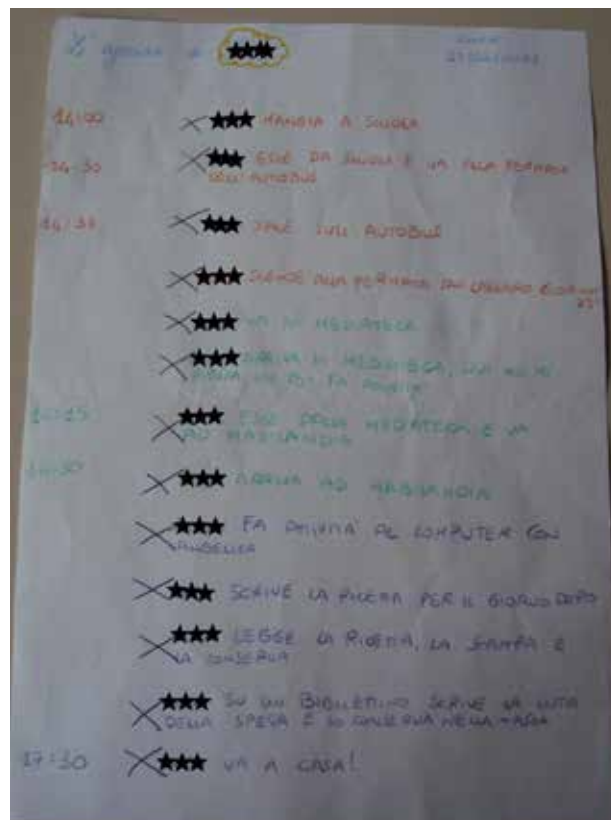 14:00 MANGIA A SCUOLA
14:30 ESCE DA SCUOLA E VA ALLA FERMATA
DELL'AUTOBUS
SALE SULL'AUTOBUS
SCENDE ALLA FERMATA
VA IN MEDIATECA
ARRIVA IN MEDIATECA,
ESCE DALLA MEDIATECA E VA
AD HABILANDIA
ARRIVA AD HABILANDIA
FA ATTIVITÀ AL COMPUTER CON
ANGELICA
SCRIVE LA RICETTA PER IL GIORNO DOPO
LEGGE LA RICETTA, LA STAMPA E
LA CONSERVA
SU UN BIGLIETTINO SCRIVE LA LISTA
DELLA SPESA E LO CONSERVA NELLA
17:30 VA A CASA!